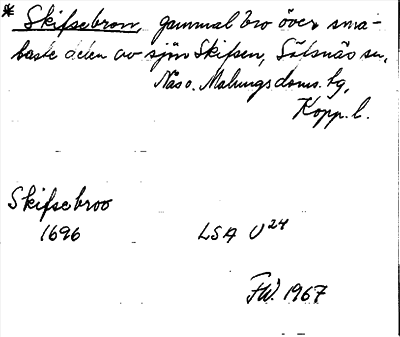 * Skifsebron, gammal bro över sma-
laste delen av sjön Skifsen, Säfsnäs sn,
Nås o. Malungs doms. hg,
Kopp. l.
Skifsebroo
1696 LSA U24
FW. 1967